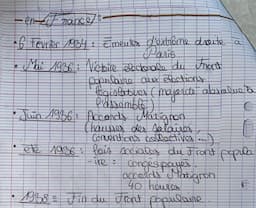 - en France
• 6 Février 1934 : Emeutes d'extrême droite à
Paris
• Mai 1936 : Victoire électorale du Front
populaire aux élections
législatives (majorité absolue à
l'assemblée)
• Juin 1936 : Accords Matignon
(hausses des salaires,
conventions collectives...)
• été 1936 : lois sociales du Front popula
-ire : congés payés
accords Matignon
40 heures
• 1938 = Fin du Front populaire.